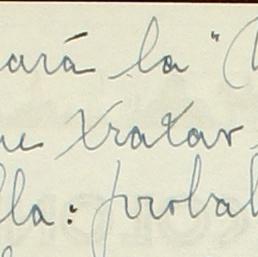 ará la "
ue tratar
lla: probal